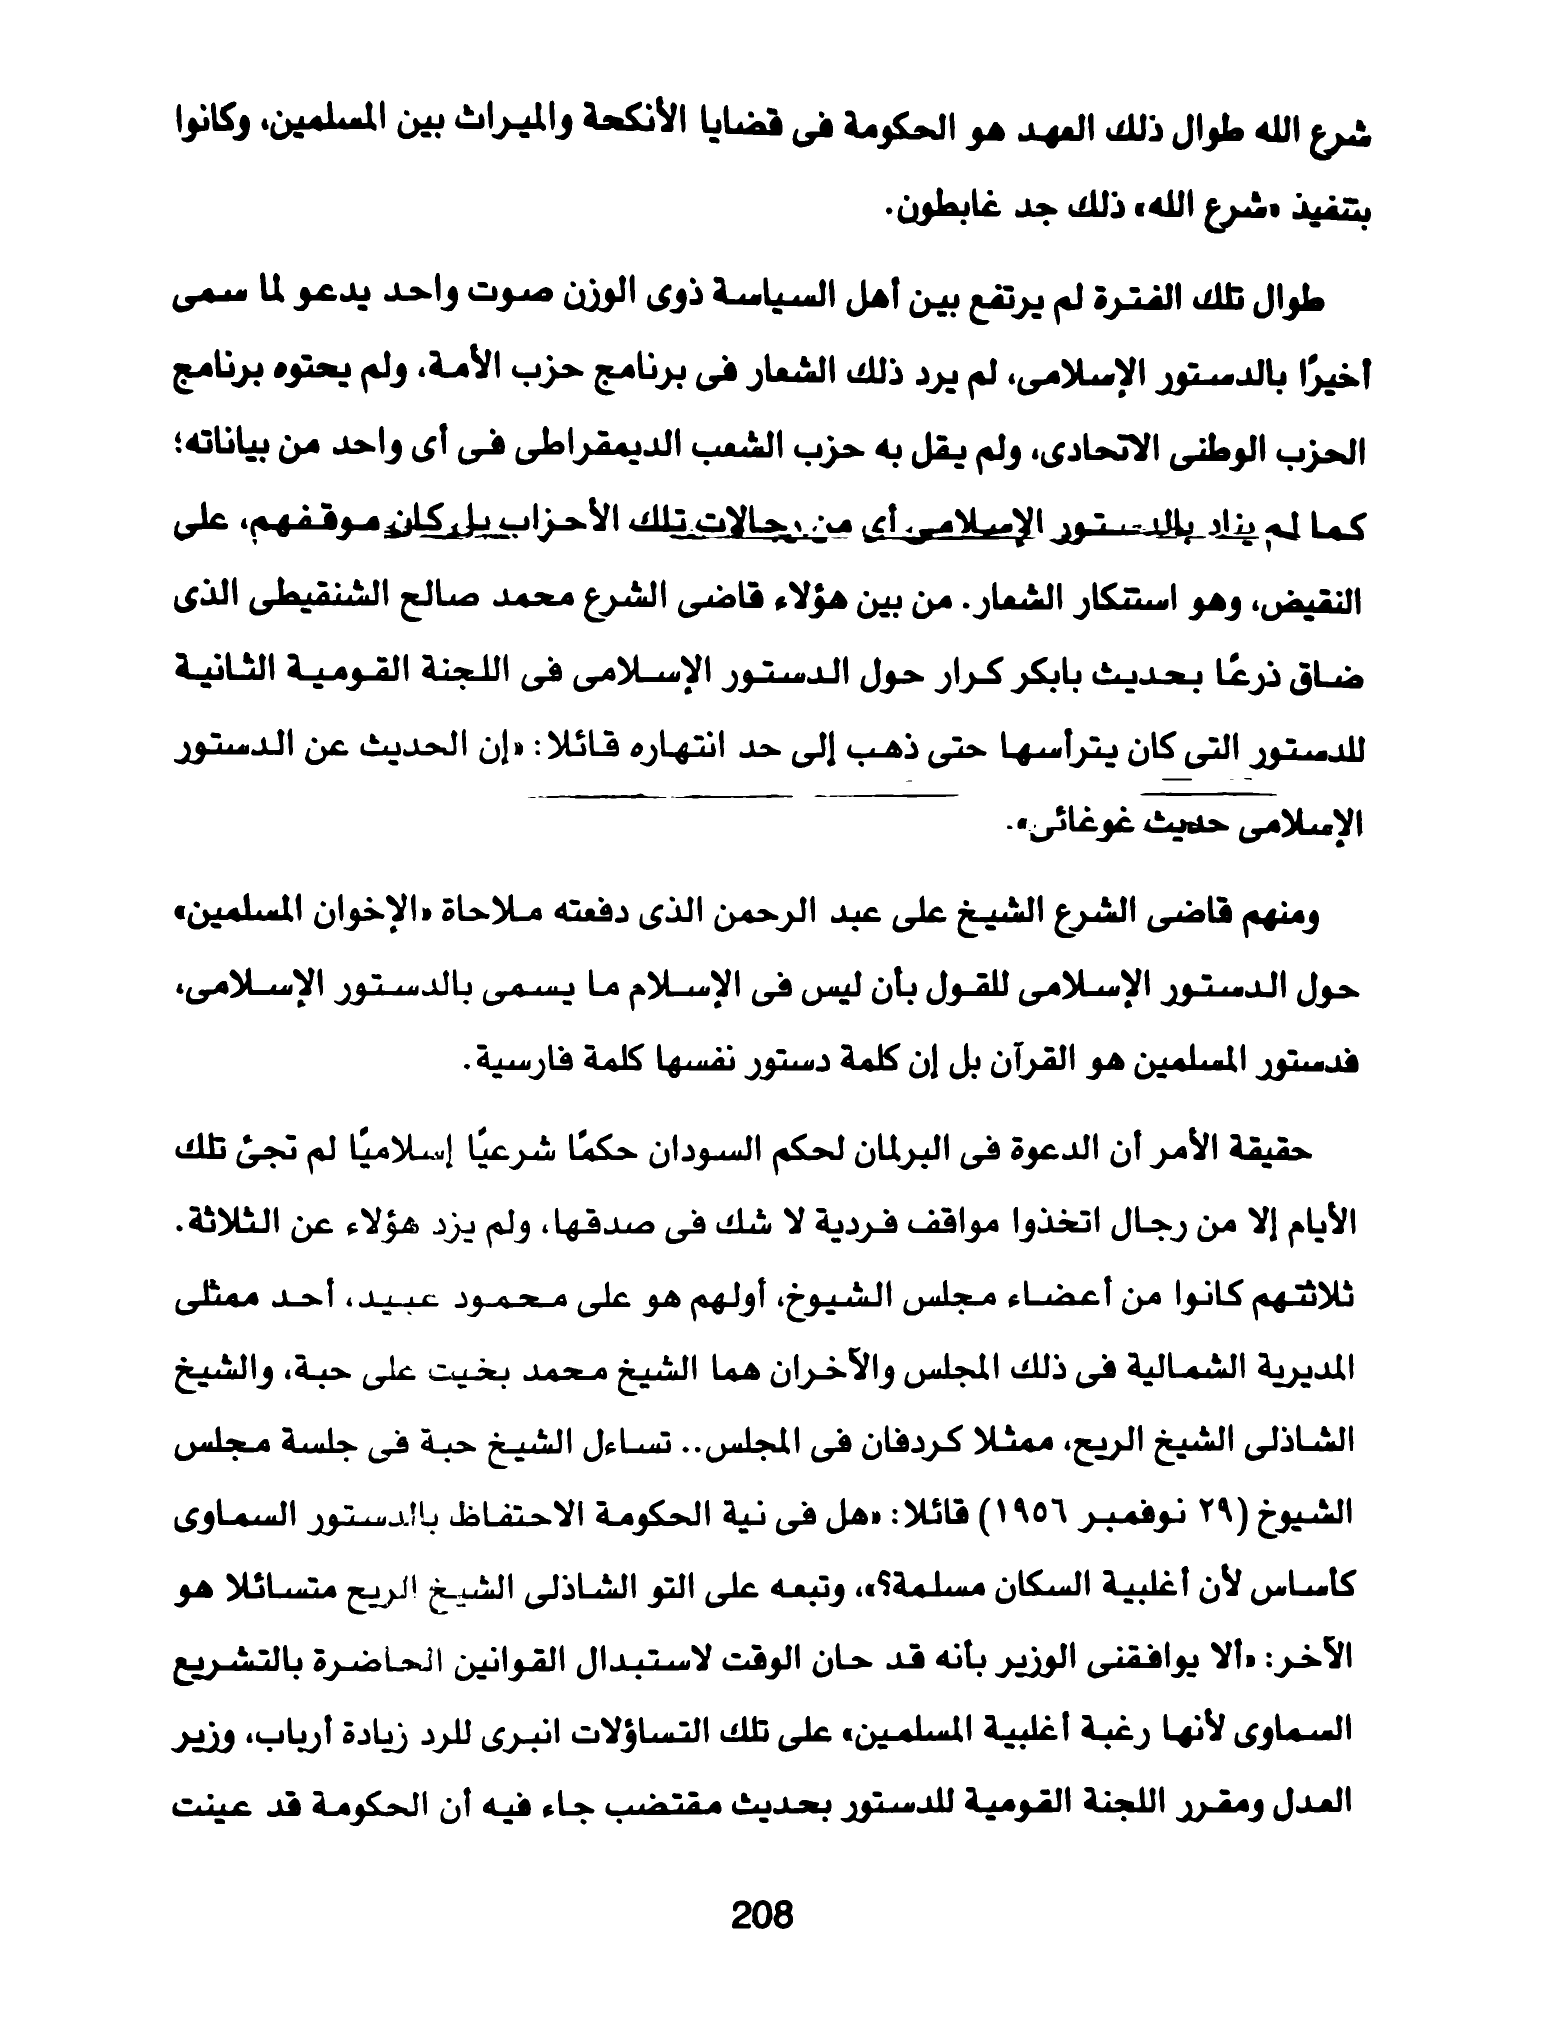 شرع الله طوال ذلك العهد هو الحكومة فى قضايا الأنكحة والميراث بين المسلمين، وكانوا
بتنفيذ «شرع الله» ذلك جد غابطون.
طوال تلك الفترة لم يرتفع بين أهل السياسة ذوى الوزن صوت واحد يدعو لما سمى
أخيرًا بالدستور الإسلامى، لم يرد ذلك الشعار فى برنامج حزب الأمة، ولم يحتوه برنامج
الحزب الوطنى الاتحادى، ولم يقل به حزب الشعب الديمقراطى فى أى واحد من بياناته؛
كما لم يناد بالدستور الإسلامى أى من رجالات تلك الأحزاب بل كان موقفهم، على
النقيض، وهو استنكار الشعار. من بين هؤلاء قاضى الشرع محمد صالح الشنقيطى الذى
ضاق ذرعًا بحديث بابكر كرار حول الدستور الإسلامى فى اللجنة القومية الثانية
للدستور التى كان يترأسها حتى ذهب إلى حد انتهاره قائلا: «إن الحديث عن الدستور
الإسلامى حديث غوغائى».
ومنهم قاضى الشرع الشيخ على عبد الرحمن الذى دفعته ملاحاة «الإخوان المسلمين»
حول الدستور الإسلامى للقول بأن ليس فى الإسلام ما يسمى بالدستور الإسلامى،
فدستور المسلمين هو القرآن بل إن كلمة دستور نفسها كلمة فارسية.
حقيقة الأمر أن الدعوة فى البرلمان لحكم السودان حكمًا شرعيًا إسلاميًا لم تجئ تلك
الأيام إلا من رجال اتخذوا مواقف فردية لا شك فى صدقها، ولم يزد هؤلاء عن الثلاثة.
ثلاثتهم كانوا من أعضاء مجلس الشيوخ، أولهم هو على محمود عبيد، أحد ممثلى
المديرية الشمالية فى ذلك المجلس والآخران هما الشيخ محمد بخيت على حبة، والشيخ
الشاذلى الشيخ الريح، ممثلا كردفان فى المجلس.. تساءل الشيخ حبة فى جلسة مجلس
الشيوخ (٢٩ نوفمبر ١٩٥٦) قائلا: «هل فى نية الحكومة الاحتفاظ بالدستور السماوى
كأساس لأن أغلبية السكان مسلمة؟»، وتبعه على التو الشاذلى الشيخ الريح متسائلا هو
الآخر: «ألا يوافقنى الوزير بأنه قد حان الوقت لاستبدال القوانين الحاضرة بالتشريع
السماوى لأنها رغبة أغلبية المسلمين» على تلك التساؤلات انبرى للرد زيادة أرباب، وزير
العدل ومقرر اللجنة القومية للدستور بحديث مقتضب جاء فيه أن الحكومة قد عينت
208